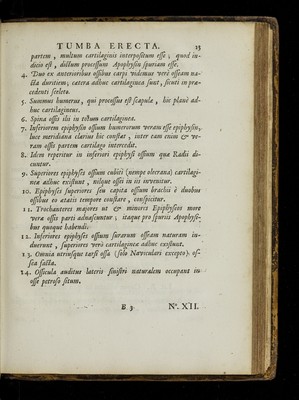 TUMBA ERECTA. 15
partem, multum cartilaginis interpositum esse; quod in-
dicio est, dictum processum Apophysin spuriam esse.
4. Duo ex anterioribus ossibus carpi videmus verè osseam na-
cta duritiem; cætera adhuc cartilaginea sunt, sicuti in præ-
cedenti sceleto.
5. Summus humerus, qui processus est scapulæ, hic planè ad-
huc cartilagineus.
6. Spina ossis ilii in totum cartilaginea.
7. Inferiorem epiphysin ossium humerorum veram esse epiphysin,
luce meridiana clarius hic constat, inter eam enim & ve-
ram ossis partem cartilago intercedit.
8. Idem reperitur in inferiori epiphysi ossium quæ Radii di-
cuntur.
9. Superiores epiphyses ossium cubiti (nempe olecrana) cartilagi-
neæ adhuc existunt, nilque ossis in iis invenitur.
10. Epiphyses superiores seu capita ossium brachii è duobus
ossibus eo ætatis tempore constare, conspicitur.
11. Trochanteres majores ut & minores Epiphyseos more
veræ ossis parti adnascuntur; itaque pro spuriis Apophysi-
bus quoque habendi.
12. Inferiores epiphyses ossium surarum osseam naturam in-
duerunt, superiores verò cartilagineæ adhuc existunt.
13. Omnia utriusque tarsi ossa (solo Naviculari excepto) os-
sea facta.
14. Ossicula auditus lateris sinistri naturalem occupant in
osse petroso situm.
B 3 N°. XII.